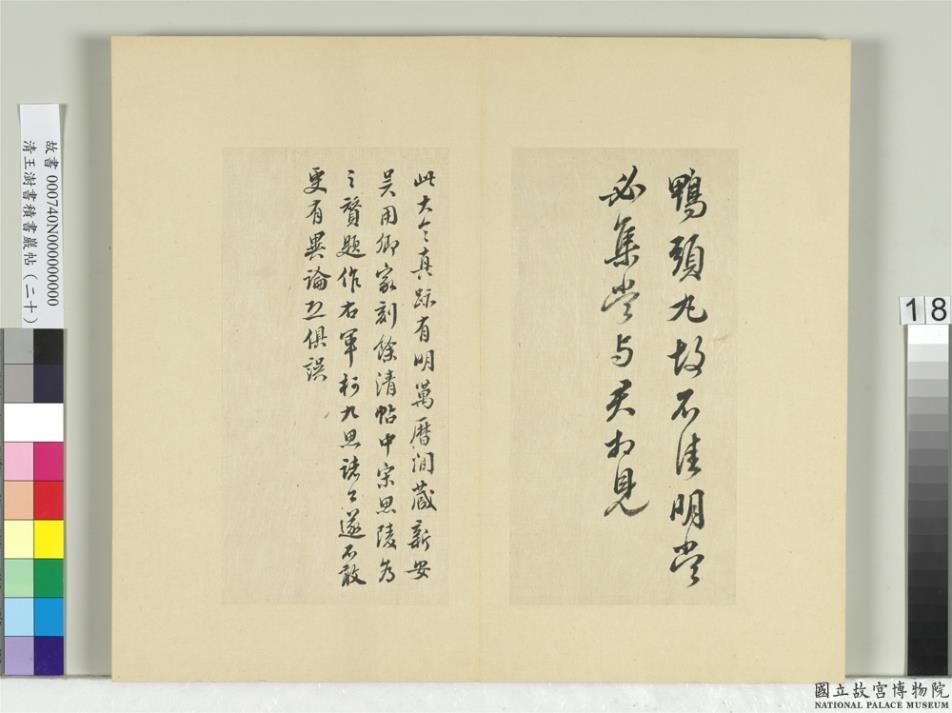 鴨頭丸故不佳明當
必集當与君相見
此大令真跡有明萬曆間藏新安
吴用卿家刻餘清帖中宋思陵為
之贊題作右軍柯九思諸公遂不敢
更有異論
俱誤
故書000740N000000000
清王澍書積書巖帖（二十）
18
國立故宮博物院
NATIONAL PALACE MUSEUM